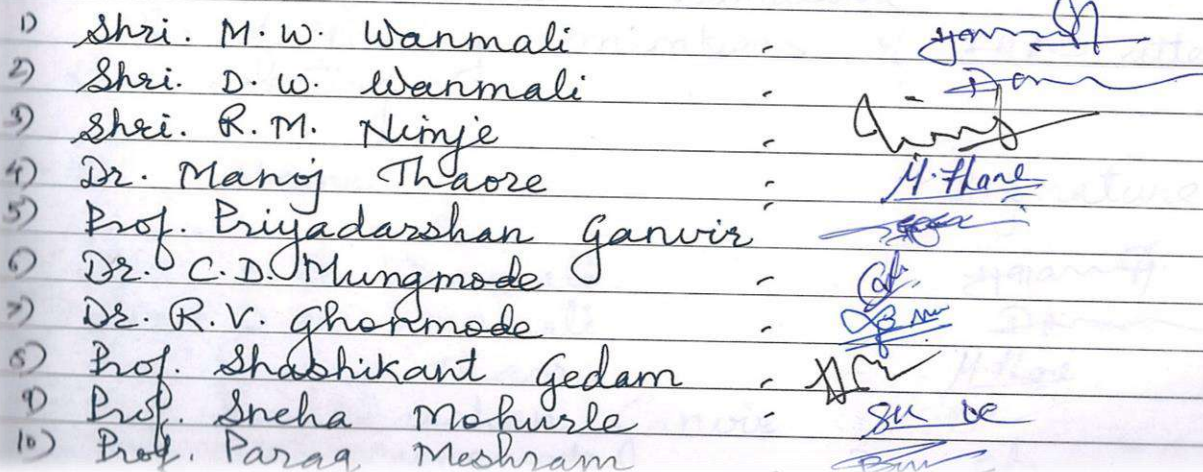 1) Shri. M. W. Wanmali -
2) Shri. D. W. Wanmali -
3) Shri. R. M. Nimje -
4) Dr. Manoj Thaore - M. Thare
5) Prof. Priyadarshan Ganvir -
6) Dr. C. D. Mungmode -
7) Dr. R. V. Ghonmode -
8) Prof. Shashikant Gedam -
9) Prof. Sneha Mohurle -
10) Prof. Parag Meshram